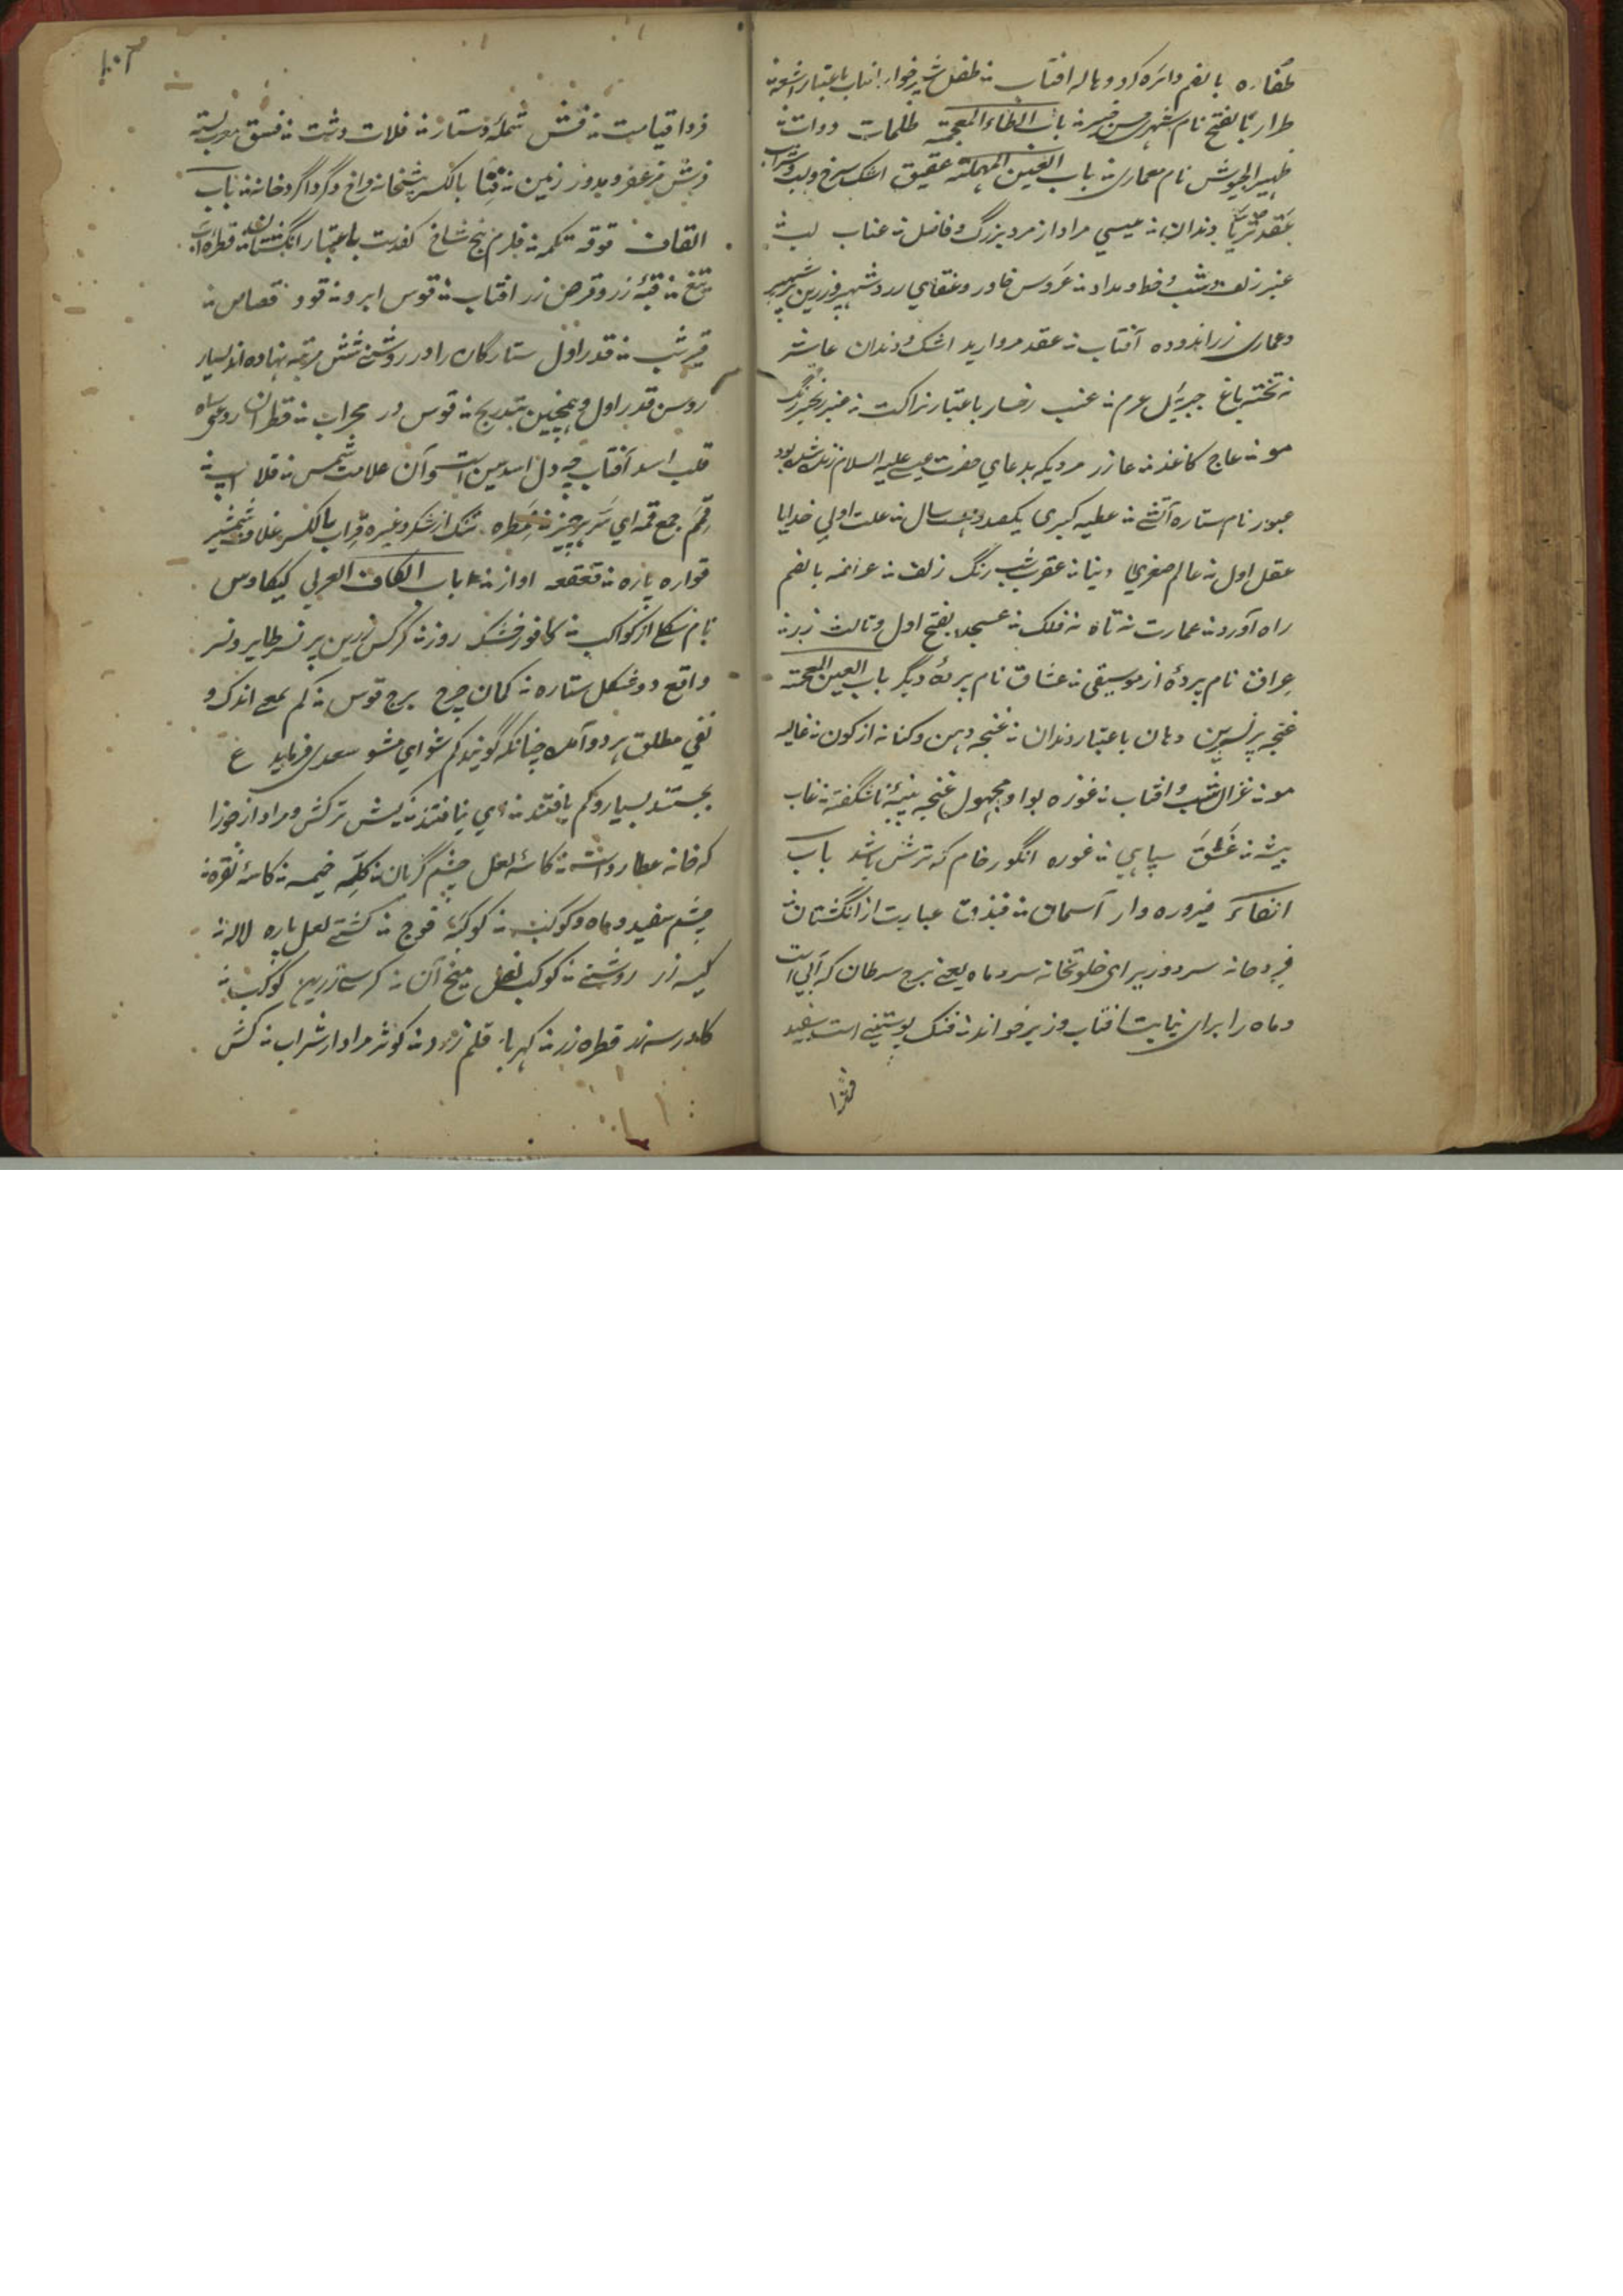 طفاره بالضم دائره کرد و هاله افتاب طفل شیر خوار افتاب باعتبار اشعه
طراز بالفتح نام شهری حسن خیز باب الظاء المعجمة ظلمات دوات
ظهیر الجیوش نام معماری باب العین المهملة عقیق اشک سرخ و لب و شراب
عقد ثریا دندان عیسی مراد از مرد بزرگ و فاضل عناب لب
عنبر زلف و شب و خط و مداد عروس خاور و عنقای زرد شهپر زرین
وعماری زر اندوده آفتاب عقد مروارید اشک و دندان عاشر
تخته باغ جبرئیل عرم عنب رخسار باعتبار نزاکت عنبر زنجیر رنگ
مو عاج کاغذ عازر مردیکه بدعای حضرت عیسی علیه السلام زنده شده بود
عبور نام ستاره آتشی عطیه کبری یکصد و بیست سال علت اولی خدایا
عقل اول عالم صغری دنیا عقرب شب رنگ زلف عراضه بالضم
راه آورد عمارت تاه نه فلک عسجد بفتح اول و ثالث زر
عراق نام پردۀ از موسیقی عشاق نام پردۀ دیگر باب الغین المعجمة
غنچه پر نسرین دهان باعتبار دندان غنچه دهن و کنایه از کون غالیه
مو غزال شب و افتاب غوزه بواو مجهول غنچه پنبۀ ناشگفته غاب
بیشه غسق سیاهی غوره انگور خام که ترش باشد باب
الفاء فیروزه وار آسمان فندق عبارت از انگشتان
فردخانه سرد وزیر ای خلوتخانه سرد ماه یعنی برج سرطان که آبی است
و ماه را برای نیابت افتاب وزیر خوانند فنک پوستینی است سفید
فردا
فردا قیامت فش شملۀ دستار فلات دشت فستق معرب پسته
فرش مزعفر و مدور زمین فنا بالکسر پیشخانه فراخ و گرداگرد خانه باب
القاف قوقه تکمه قلزم پنج شاخ کفدست باعتبار انگشتان قطرۀ آب
تیغ قبۀ زر و قرص زر افتاب قوس ابرو قود قصاص
قیر شب قدر اول ستارگان را در روشنی شش مرتبه نهاده اند بسیار
روشن قدر اول و همچنین بتدریج قوس در محراب قطران روغن سیاه
قلب اسد آفتاب چه دل اسد سین است و آن علامت شمس قلا اسپ
قمم جمع قمه ای سر هر چیز قمطره تنگ از شکر و غیره قراب بالکسر غلاف شمشیر
قواره پاره قعقعه اواز باب الکاف العربی کیکاوس
نام شکلی از کواکب کافور خشک روز کرکس زرین پر نسر طایر و نسر
واقع دو شکل ستاره کمان چرخ برج قوس کم بمعنی اندک و
نفی مطلق هر دو آمده چنانکه گویند کم شو ای مشو سعدی فرماید ع
بجستند بسیار و کم یافتند ای نیافتند کیش ترکش و مراد از جوزا
که خانه عطارد است کاسۀ لعل چشم گریان کله خیمه کاسۀ نقره
چشم سفید و ماه و کوکب کوکبه فوج کشتی لعل پاره لاله
کیسه زر روشنی کوکب نعل میخ آن کرسی زرین کوکب
کاورسه زر قطره زر کهربا قلم زرد کوثر مراد از شراب کش